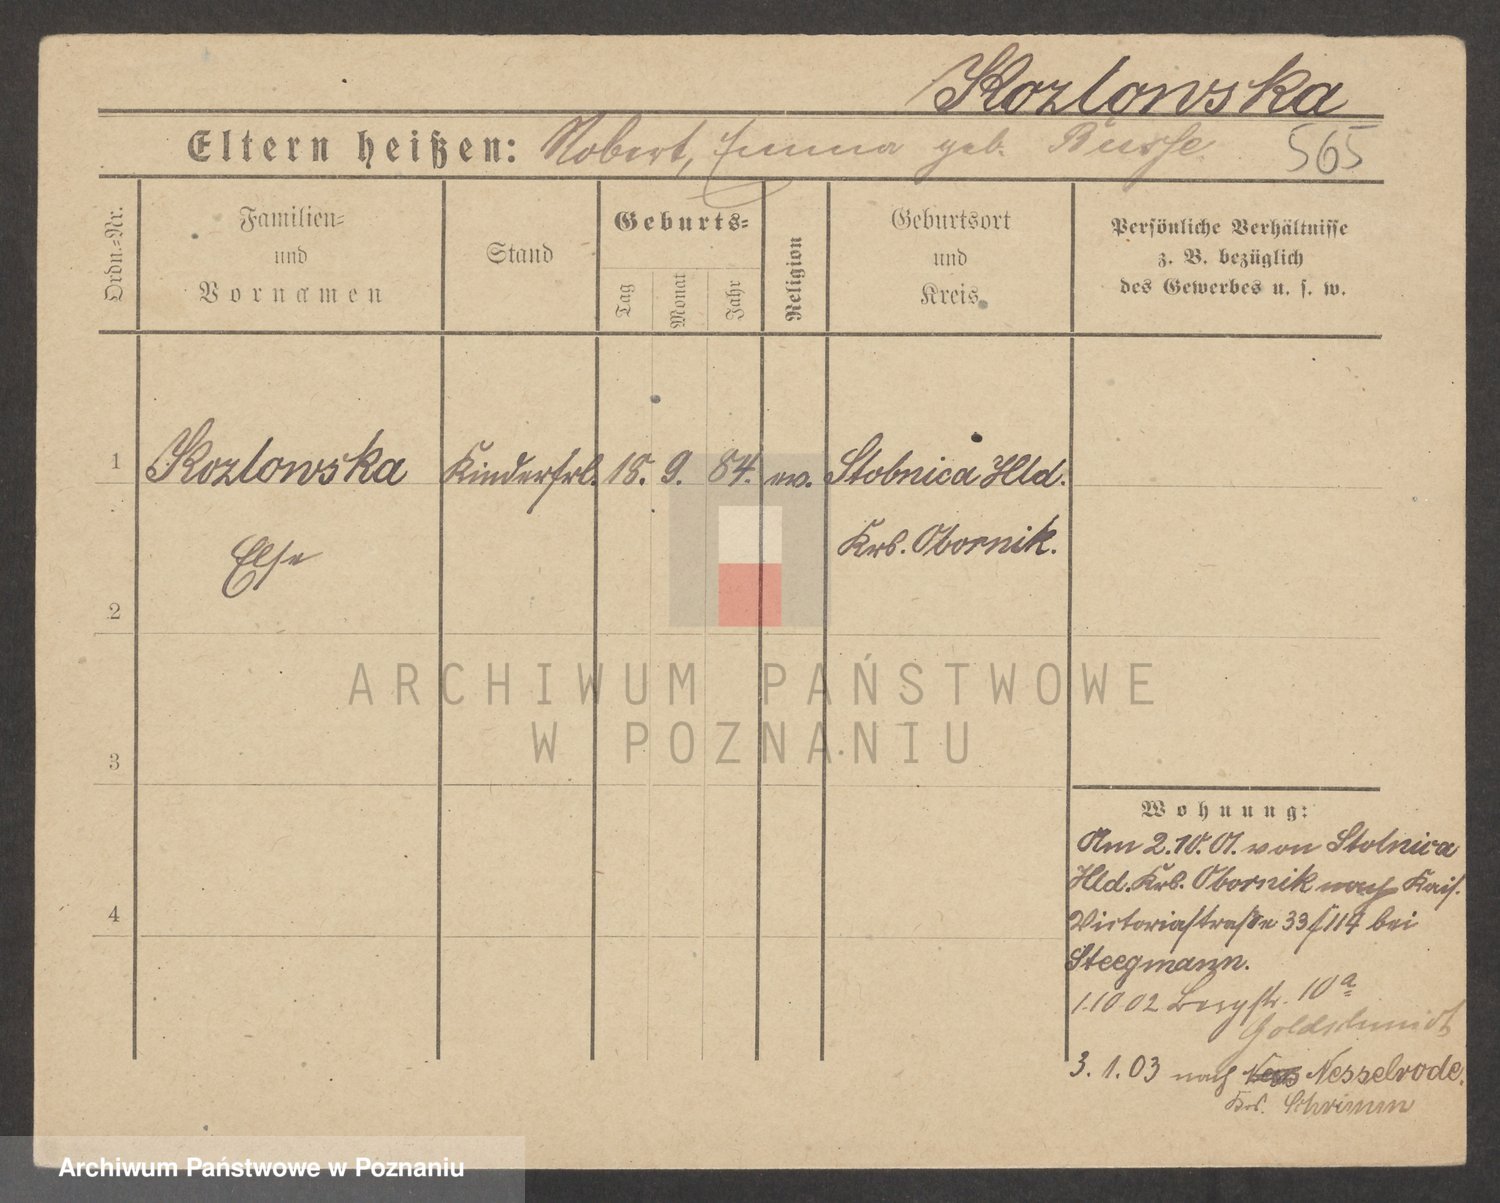 Kozlowska
Eltern heißen: Robert, Emma geb. Busse
565
Ordn.=Nr.
Familien=
und
Vornamen
Stand
Geburts=
Tag
Monat
Jahr
Religion
Geburtsort
und
Kreis
Persönliche Verhältnisse
z. B. bezüglich
des Gewerbes u. s. w.
1
Kozlowska
Else
Kinderfrl.
18. 9. 84.
ev.
Stobnica Hld.
Krs. Obornik.
2
3
4
ARCHIWUM PAŃSTWOWE
W POZNANIU
Wohnung:
Am 2.10.01. von Stobnica
Hld. Krs. Obornik nach Kais.
Victoriastraße 33/114 bei
Steegmann.
1.10.02 Bergstr. 10a
Goldschmidt
3.1.03 nach Nesselrode.
Krs. Schrimm
Archiwum Państwowe w Poznaniu